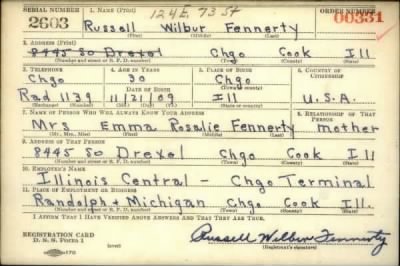 SERIAL NUMBER 1. NAME (Print) 124 E. 73 St ORDER NUMBER
2603 Russell Wilbur Fennerty 00331
(First) (Middle) (Last)
2. ADDRESS (Print)
8445 So Drexel Chgo Cook Ill
(Number and street or R. F. D. number) (Town) (County) (State)
3. TELEPHONE 4. AGE IN YEARS 5. PLACE OF BIRTH 6. COUNTRY OF CITIZENSHIP
Chgo 30 Chgo
DATE OF BIRTH (Town or county)
Rad 1139 11/21/09 Ill U.S.A.
(Exchange) (Number) (Mo.) (Day) (Yr.) (State or country)
7. NAME OF PERSON WHO WILL ALWAYS KNOW YOUR ADDRESS 8. RELATIONSHIP OF THAT PERSON
Mrs Emma Rosalie Fennerty mother
(Mr., Mrs., Miss) (First) (Middle) (Last)
9. ADDRESS OF THAT PERSON
8445 So Drexel Chgo Cook Ill
(Number and street or R. F. D. number) (Town) (County) (State)
10. EMPLOYER'S NAME
Illinois Central - Chgo Terminal
11. PLACE OF EMPLOYMENT OR BUSINESS
Randolph + Michigan Chgo Cook Ill.
(Number and street or R. F. D. number) (Town) (County) (State)
I AFFIRM THAT I HAVE VERIFIED ABOVE ANSWERS AND THAT THEY ARE TRUE.
REGISTRATION CARD
D. S. S. FORM 1 (over) Russell Wilbur Fennerty
(Registrant's signature)